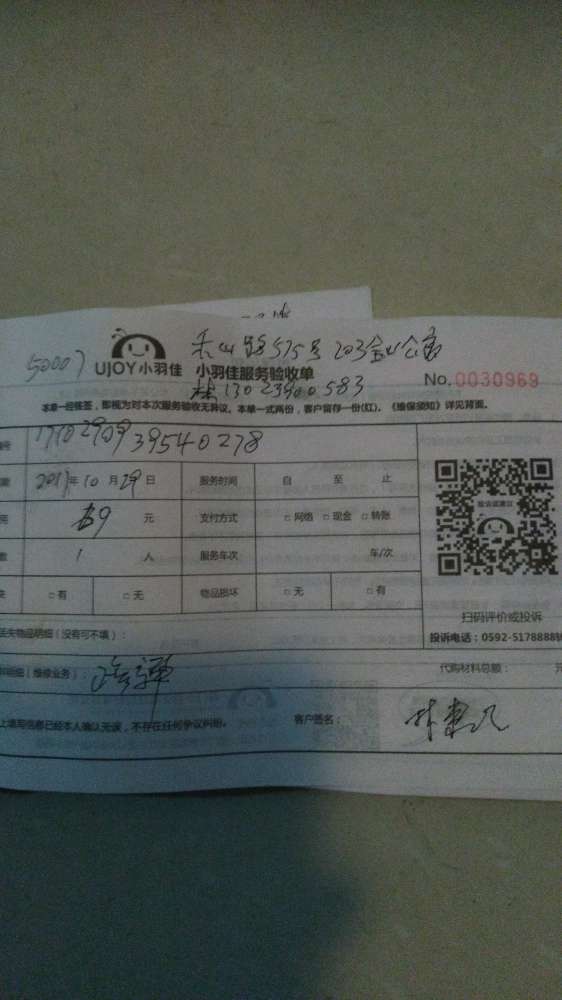 50007 UJOY小羽佳 禾山路575号203金山公寓
小羽佳服务验收单
林13023900583
No.0030969
本单一经签签，即视为对本次服务验收无异议。本单一式两份，客户留存一份(红)。《维保须知》详见背面。
号 1710290939540278
2017年10月29日 服务时间 自 至 止
69元 支付方式 □网络 □现金 □转账
1人 服务车次 车/次
□有 □无 物品损坏 □无 □有
扫码评价或投诉
丢失物品明细（没有可不填）：
投诉电话：0592-5178888转
明细（维修业务）： 代购材料总额： 元
上填写信息已经本人确认无误，不存在任何争议纠纷。 客户签名：